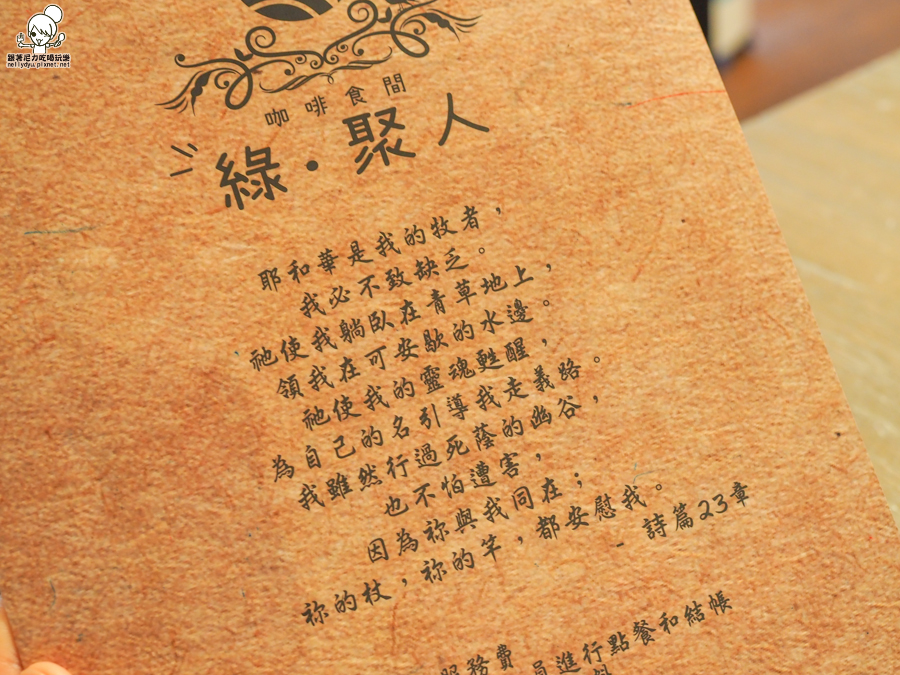 跟著尼力吃喝玩樂
nellydyu.pixnet.net
咖啡食間
綠·聚人
耶和華是我的牧者，
我必不致缺乏。
祂使我躺臥在青草地上，
領我在可安歇的水邊。
祂使我的靈魂甦醒，
為自己的名引導我走義路。
我雖然行過死蔭的幽谷，
也不怕遭害，
因為祢與我同在；
祢的杖，祢的竿，都安慰我。
- 詩篇23章
服務費
員進行點餐和結帳